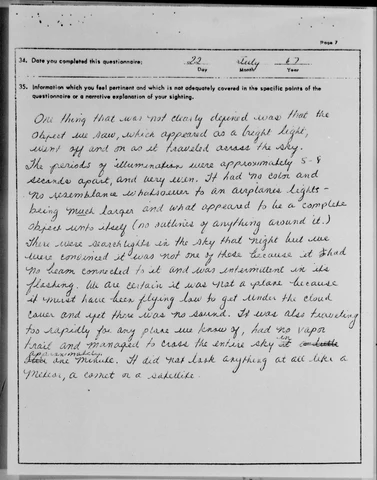 Page 7
34. Date you completed this questionnaire: 22 July 67
Day Month Year
35. Information which you feel pertinent and which is not adequately covered in the specific points of the
questionnaire or a narrative explanation of your sighting.
One thing that was not clearly defined was that the
object we saw, which appeared as a bright light,
went off and on as it traveled across the sky.
The periods of illumination were approximately 5-8
seconds apart, and very even. It had no color and
no resemblance whatsoever to an airplanes lights -
being much larger and what appeared to be a complete
object unto itself (no outlines of anything around it.)
There were searchlights in the sky that night but we
were convinced it was not one of these because it had
no beam connected to it and was intermittent in its
flashing. We are certain it was not a plane because
it must have been flying low to get under the cloud
cover and yet there was no sound. It was also traveling
too rapidly for any plane we know of, had no vapor
trail and managed to cross the entire sky in a little
approximately
over one minute. It did not look anything at all like a
meteor, a comet or a satellite.